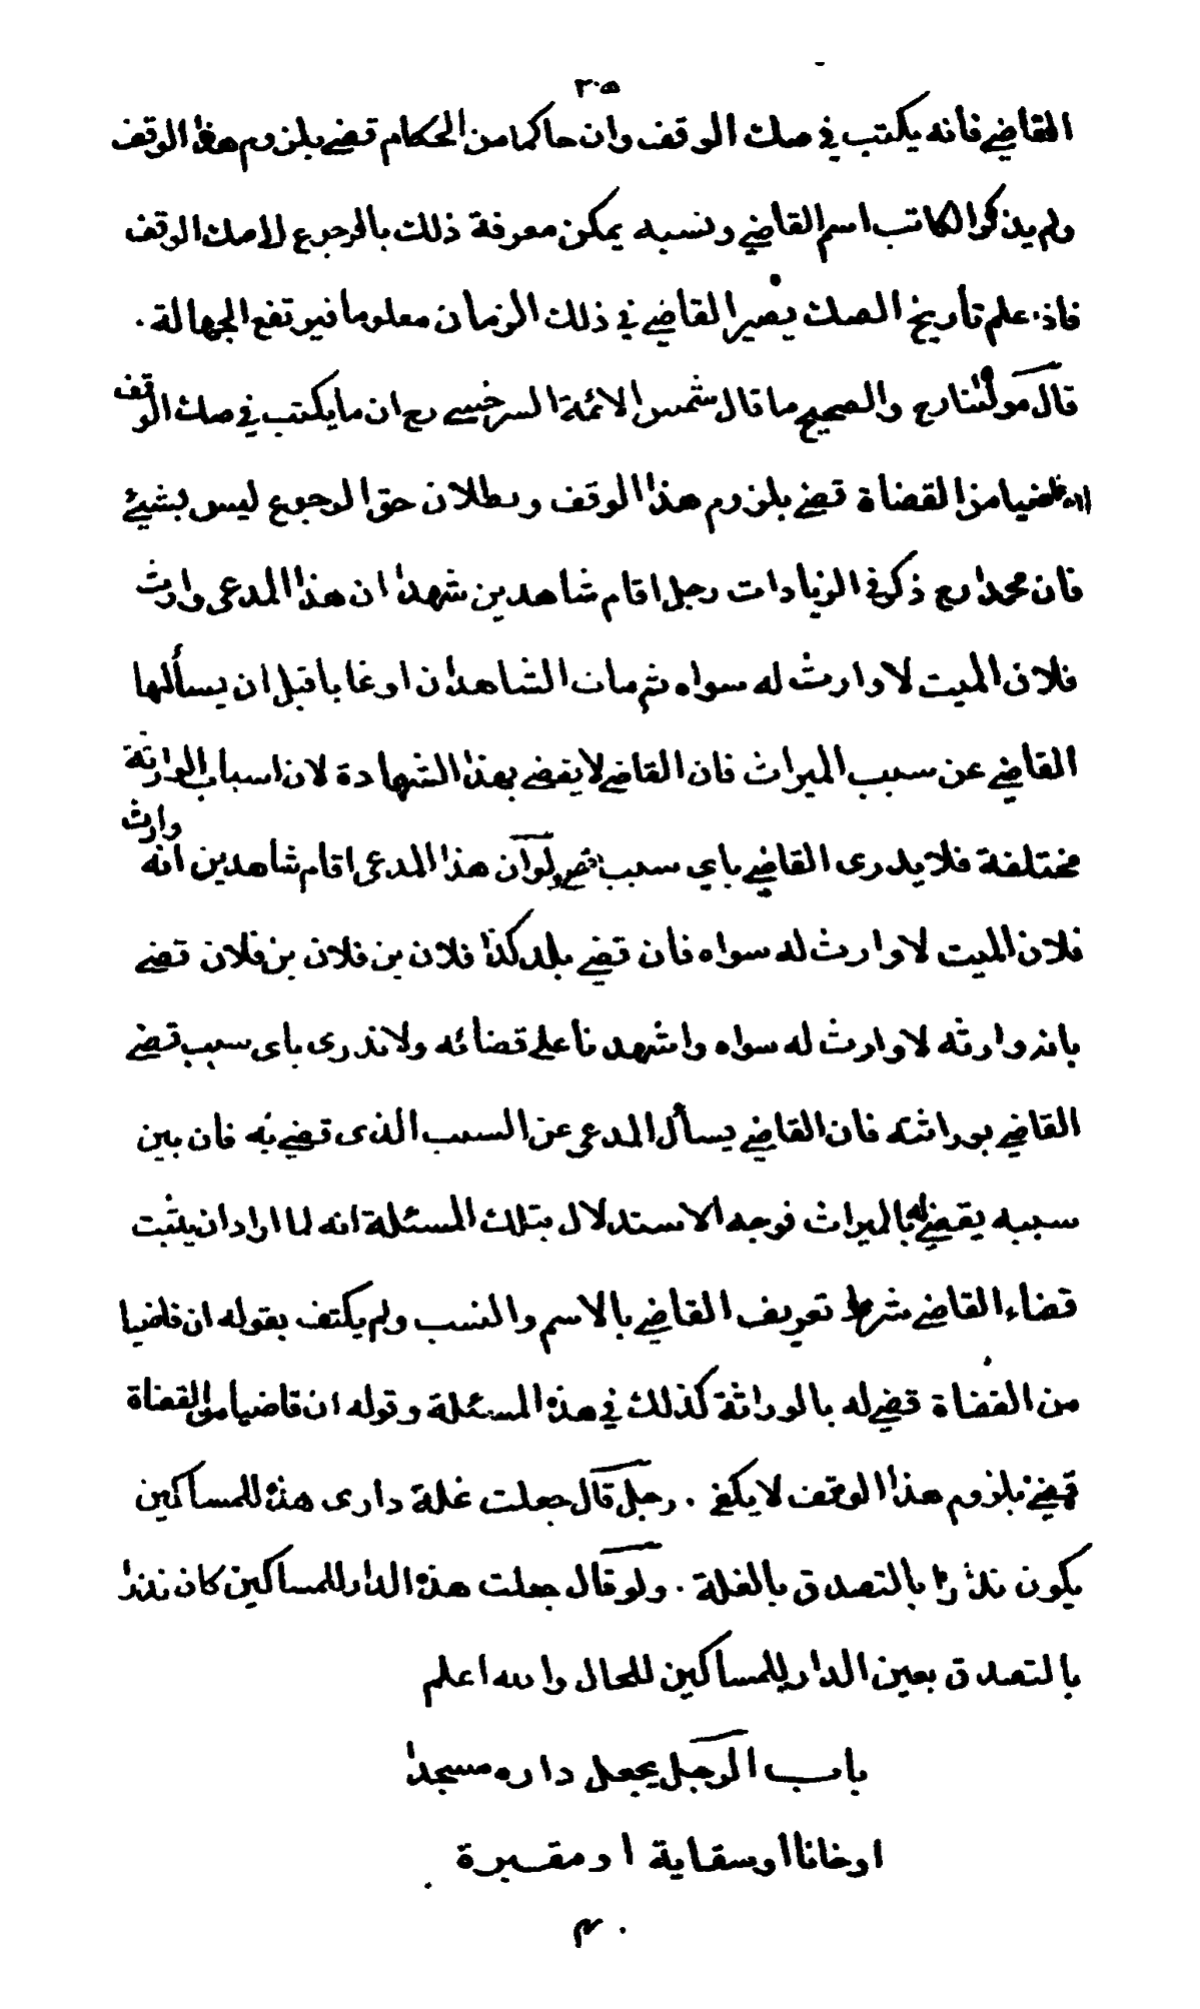 ٣٠٥
القاضي فانه يكتب في صك الوقف وان حاكما من الحكام قضى بلزوم هذا الوقف
ولم يذكر الكاتب اسم القاضي ونسبه يمكن معرفة ذلك بالرجوع الى صك الوقف
فاذا علم تأريخ الصك يصير القاضي في ذلك الزمان معلوما فيرتفع الجهالة .
قال مولٰنا رح والصحيح ما قال شمس الائمة السرخسي رح ان ما يكتب في صك الوقف
ان قاضيا من القضاة قضى بلزوم هذا الوقف وبطلان حق الرجوع ليس بشيئ
فان محمدا رح ذكر في الزيادات رجل اقام شاهدين شهدا ان هذا المدعى وارث
فلان الميت لا وارث له سواه ثم مات الشاهدان او غابا قبل ان يسألهما
القاضي عن سبب الميراث فان القاضي لا يقضي بهذا الشهادة لان اسباب الوارثة
مختلفة فلا يدرى القاضي باي سبب ولو ان هذا المدعى اقام شاهدين انه وارث
فلان الميت لا وارث له سواه فان قضي بلد كذا فلان بن فلان بن فلان قضى
بانه وارثه لا وارث له سواه واشهدنا على قضائه ولا ندرى باى سبب قضى
القاضي بوراثته فان القاضي يسأل المدعى عن السبب الذى قضى به فان بين
سببه يقضي له بالميراث فوجه الاستدلال بتلك المسئلة انه لما اراد ان يثبت
قضاء القاضي شرط تعريف القاضي بالاسم والنسب ولم يكتف بقوله ان قاضيا
من القضاة قضى له بالوراثة كذلك في هذه المسئلة وقوله ان قاضيا من القضاة
قضى بلزوم هذا الوقف لا يكفي . رجل قال جعلت غلة دارى هذه للمساكين
يكون نذرا بالتصدق بالغلة . ولو قال جعلت هذه الدار للمساكين كان نذرا
بالتصدق بعين الدار للمساكين للحال والله اعلم
باب الرجل يجعل داره مسجدا
او خانا او سقاية او مقبرة